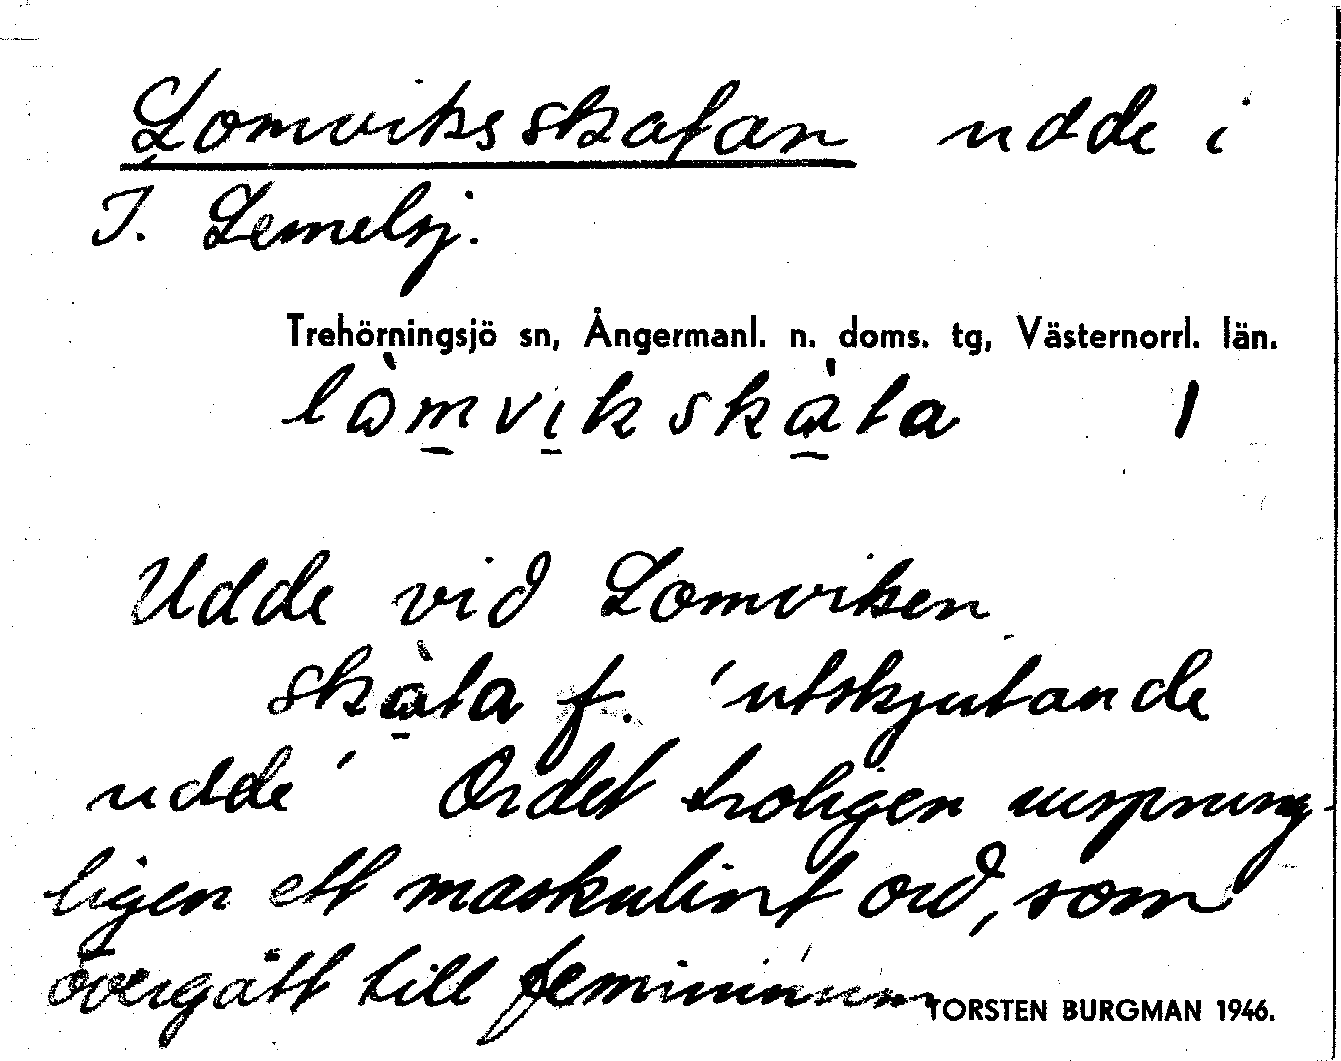 Lomviksskatan udde i
I. Lemelsj.
Trehörningsjö sn, Ångermanl. n. doms. tg, Västernorrl. län.
lòmvikskàta 1
Udde vid Lomviken
skàta f. 'utskjutande
udde' Ordet troligen ursprung-
ligen ett maskulint ord, som
övergått till femininum
TORSTEN BURGMAN 1946.